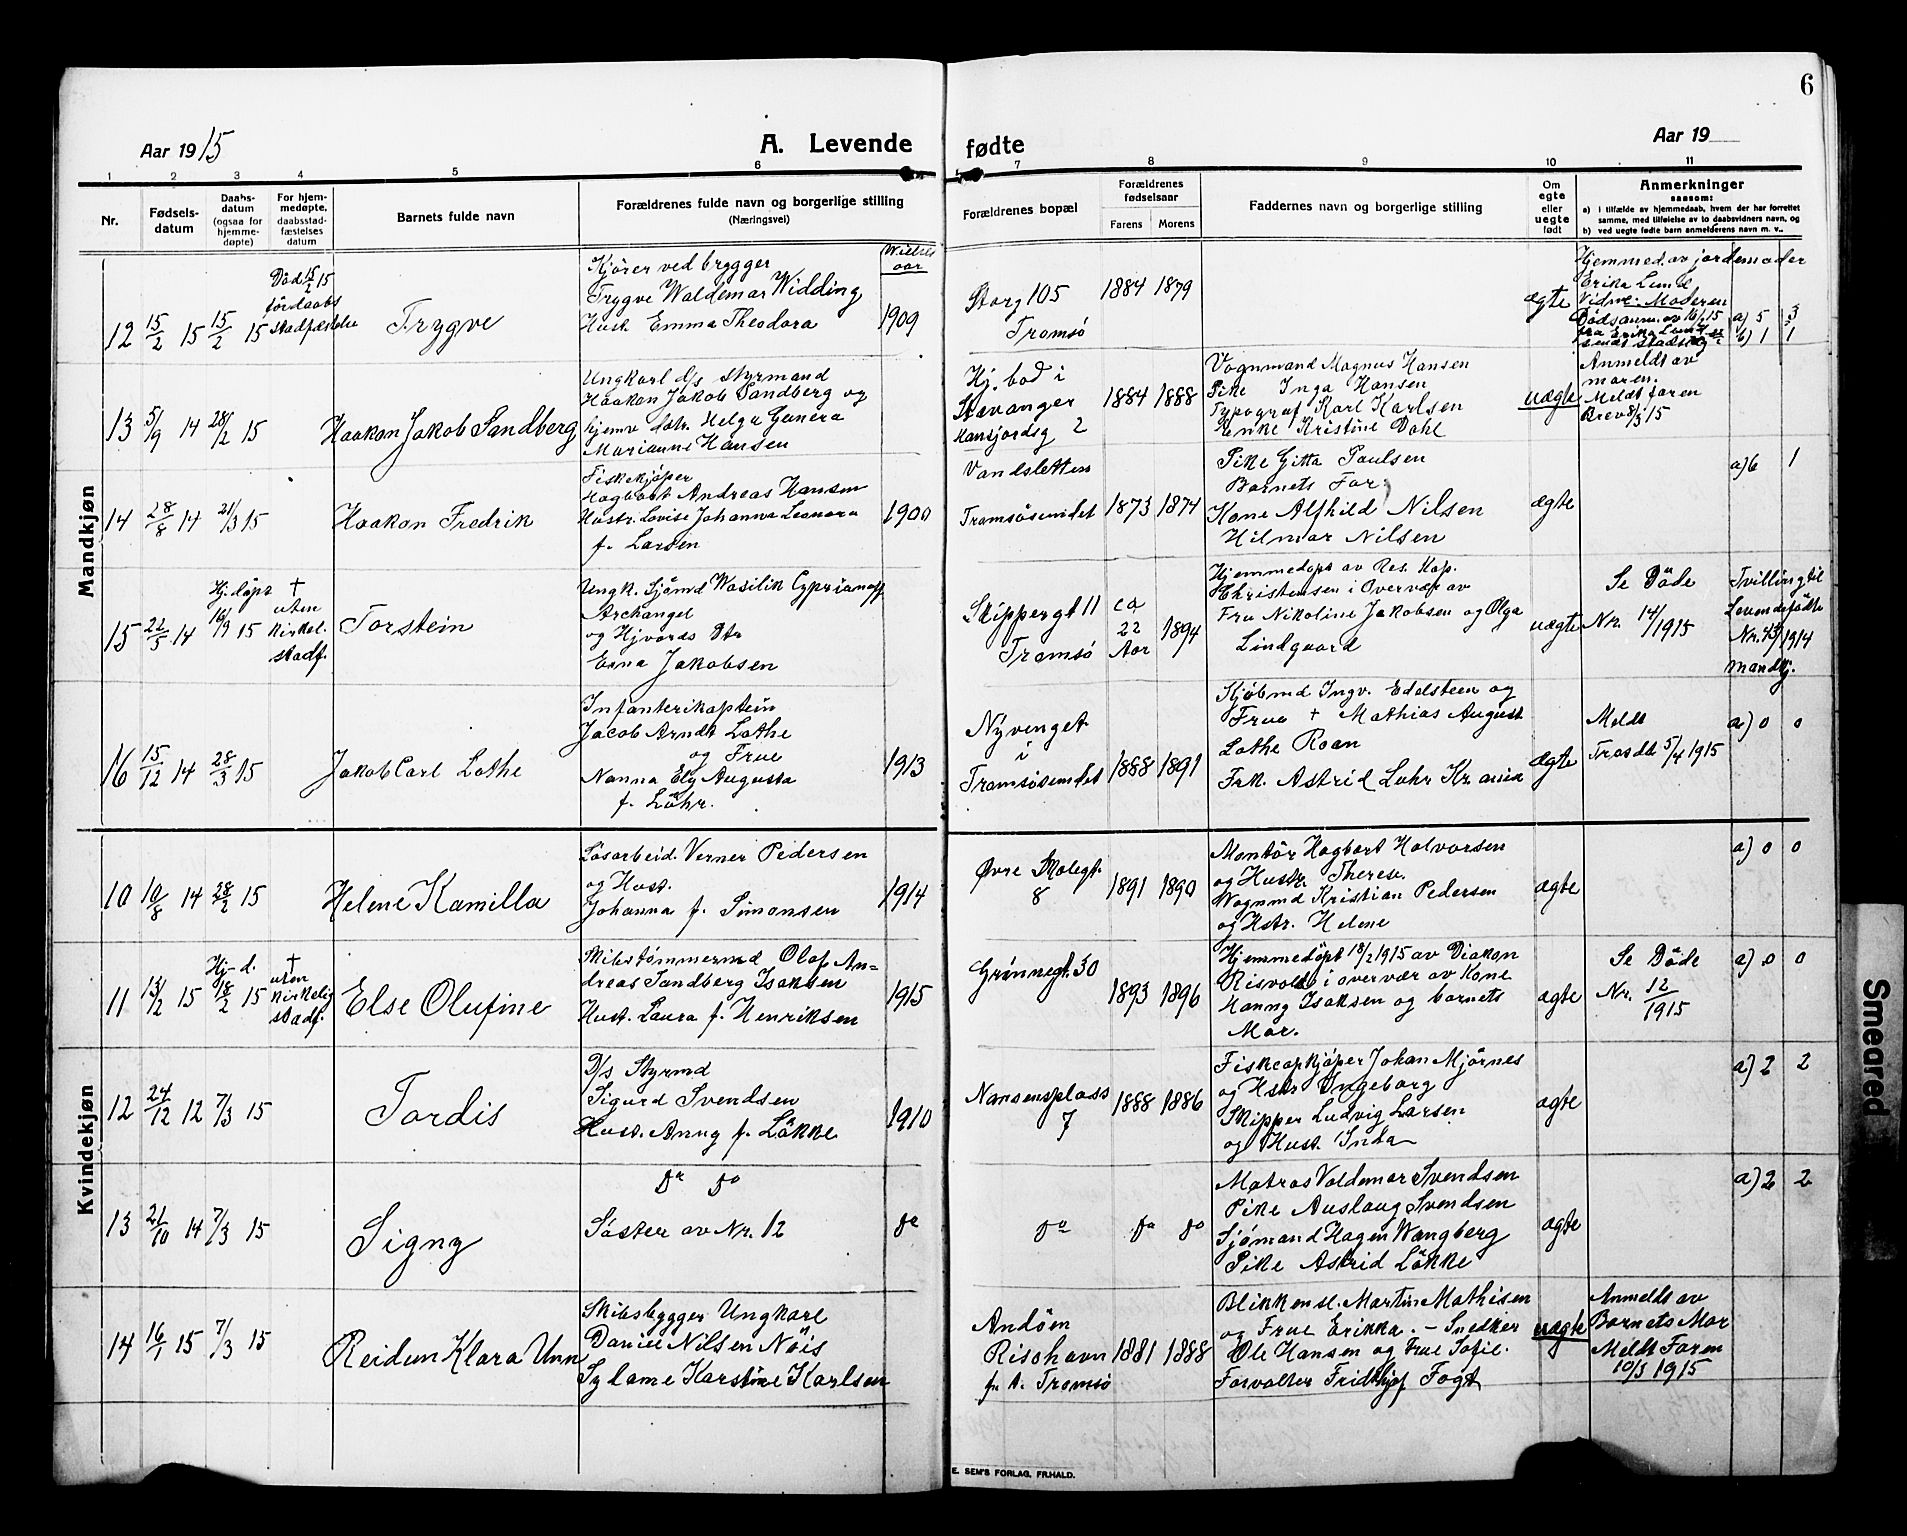 6
Aar 1915
A. Levende
fødte
Aar 19
1 2 3 4 5 6 7 8 9 10 11
Nr.
Fødsels-
datum
Daabs-
datum
(ogsaa for
hjemme-
døpte)
For hjem-
medøpte,
daabsstad-
fæstelses
datum
Barnets fulde navn
Forældrenes fulde navn og borgerlige stilling
(Næringsvei)
Vielses
aar
Forældrenes bopæl
Forældrenes
fødselsaar
Farens Morens
Faddernes navn og borgerlige stilling
Om
egte
eller
uegte
født
Anmerkninger
saasom:
a) i tilfælde av hjemmedaab, hvem der har forrettet
samme, med tilføielse av to daabsvidners navn, og
b) ved uegte fødte barn anmelderens navn m. v..
Mandkjøn
12 15/2 15 15/2 15
Död 15/2 15
för daabs
stadfæstelse
Trygve
Kjører ved brygger
Trygve Waldemar Widding
Hust. Emma Theodora
1909
Storg 105
Tromsø
1884 1879
ægte
Hjemmed. av jordemoder
Erika Lund
Vidne: Moderen
Dødsanm. av 16/2 15
fra Erika Lund
a) 5 3
b) 1 1
13 5/9 14 28/2 15
Haakon Jakob Sandberg
Ungkarl d/s styrmand
Haakon Jakob Sandberg og
hjemv. datr. Helga Gunera
Marianne Hansen
Hj. bod i
Stavanger
Hansjordsg 2
1884 1888
Vognmand Magnus Hansen
Pike Inga Hansen
Typograf Karl Karlsen
Enke Kristine Dahl
uægte
Anmeldt av
moren.
Meldt faren
Brev 8/3 15
14 28/8 14 21/3 15
Haakon Fredrik
Fiskekjøper
Hagbart Andreas Hansen
Hustr. Lovise Johanna Leonora
f. Larsen
1900
Vandsletten
Tromsøsundet
1873 1874
Pike Gitta Paulsen
Barnets Far
Kone Alfhild Nilsen
Hilmar Nilsen
ægte
a) 6 1
15 22/5 14
Hj. døpt
16/9 15
†
uten
kirkel.
stadf.
Torstein
Ungk. Sjømd Wasilik Cyprianoff
Archangel
og Hjværds Dtr
Erna Jakobsen
Skippergt 11
Tromsø
ca
22
Aar
1894
Hjemmedøpt av Res. Kap.
Christensen i Overvær av
Fru Nikoline Jakobsen og Olga
Lindgaard
uægte
Se Døde
Nr. 14/1915
Tvilling til
Levendefødte
Nr. 43/1914
Mandkj.
16 15/12 14 28/3 15
Jakob Carl Lothe
Infanterikaptein
Jacob Arndt Lothe
og Frue
Nanna Ely Augusta
f. Löhr.
1913
Nyvenget
i
Tromsøsundet
1888 1891
Kjøbmd Ingv. Edelsteen og
Frue + Mathias August
Lothe Roan
Frk. Astrid Lohr Kr.ania
ægte
Meldt
Trosdd 5/4 1915
a) 0 0
Kvindekjøn
10 10/8 14 28/2 15
Helene Kamilla
Løsarbeid. Verner Pedersen
og Hust.
Johanna f. Simonsen
1914
Øvre Stolegt.
8
1891 1890
Montör Hagbart Halvorsen
og Hustr. Therese.
Vognmd Kristian Pedersen
og Hstr. Helene
ægte
a) 0 0
11 13/2 15
Hj-d.
18/2 15
†
uten
kirkelig
stadf.
Else Olufine
Skibstømmermd Olaf An=
dreas Sandberg Isaksen
Hust. Laura f. Henriksen
1915
Grönnegt. 30
1893 1896
Hjemmedöpt 18/2 1915 av Diakon
Risvold i overvær av Kone
Hanny Isaksen og barnets
Mor.
ægte
Se Døde
Nr. 12/1915
a) 0 0
12 24/12 12 7/3 15
Tordis
D/s Styrmd
Sigurd Svendsen
Hust. Anny f. Løkke
1910
Nansensplass
7
1888 1886
Fiskeopkjøper Johan Mjörnes
og Hstr Ingeborg
Skipper Ludvig Larsen
og Hust. Inda
ægte
a) 2 2
13 21/10 14 7/3 15
Signy
do do
Søster av Nr. 12
do
do
do do
Matros Valdemar Svendsen
Pike Auslaug Svendsen
Sjømand Hagen Wangberg
Pike Astrid Løkke
ægte
a) 2 2
14 16/1 15 7/3 15
Reidun Klara Unn
Skibsbygger Ungkarl
Daniel Nilsen Nöis
Sylame Karstine Karlsen
Andöen
Risøhavn
f. t. Tromsø
1881 1888
Blikkensl. Martin Mathisen
og Frue Erikka. – Snedker
Ole Hansen og Frue Sofie.
Forvalter Fridthjof Fogt
uægte
Anmeldt av
Barnets Mor
Meldt Faren
10/3 1915
E. SEM'S FORLAG, FR.HALD.
Smeared